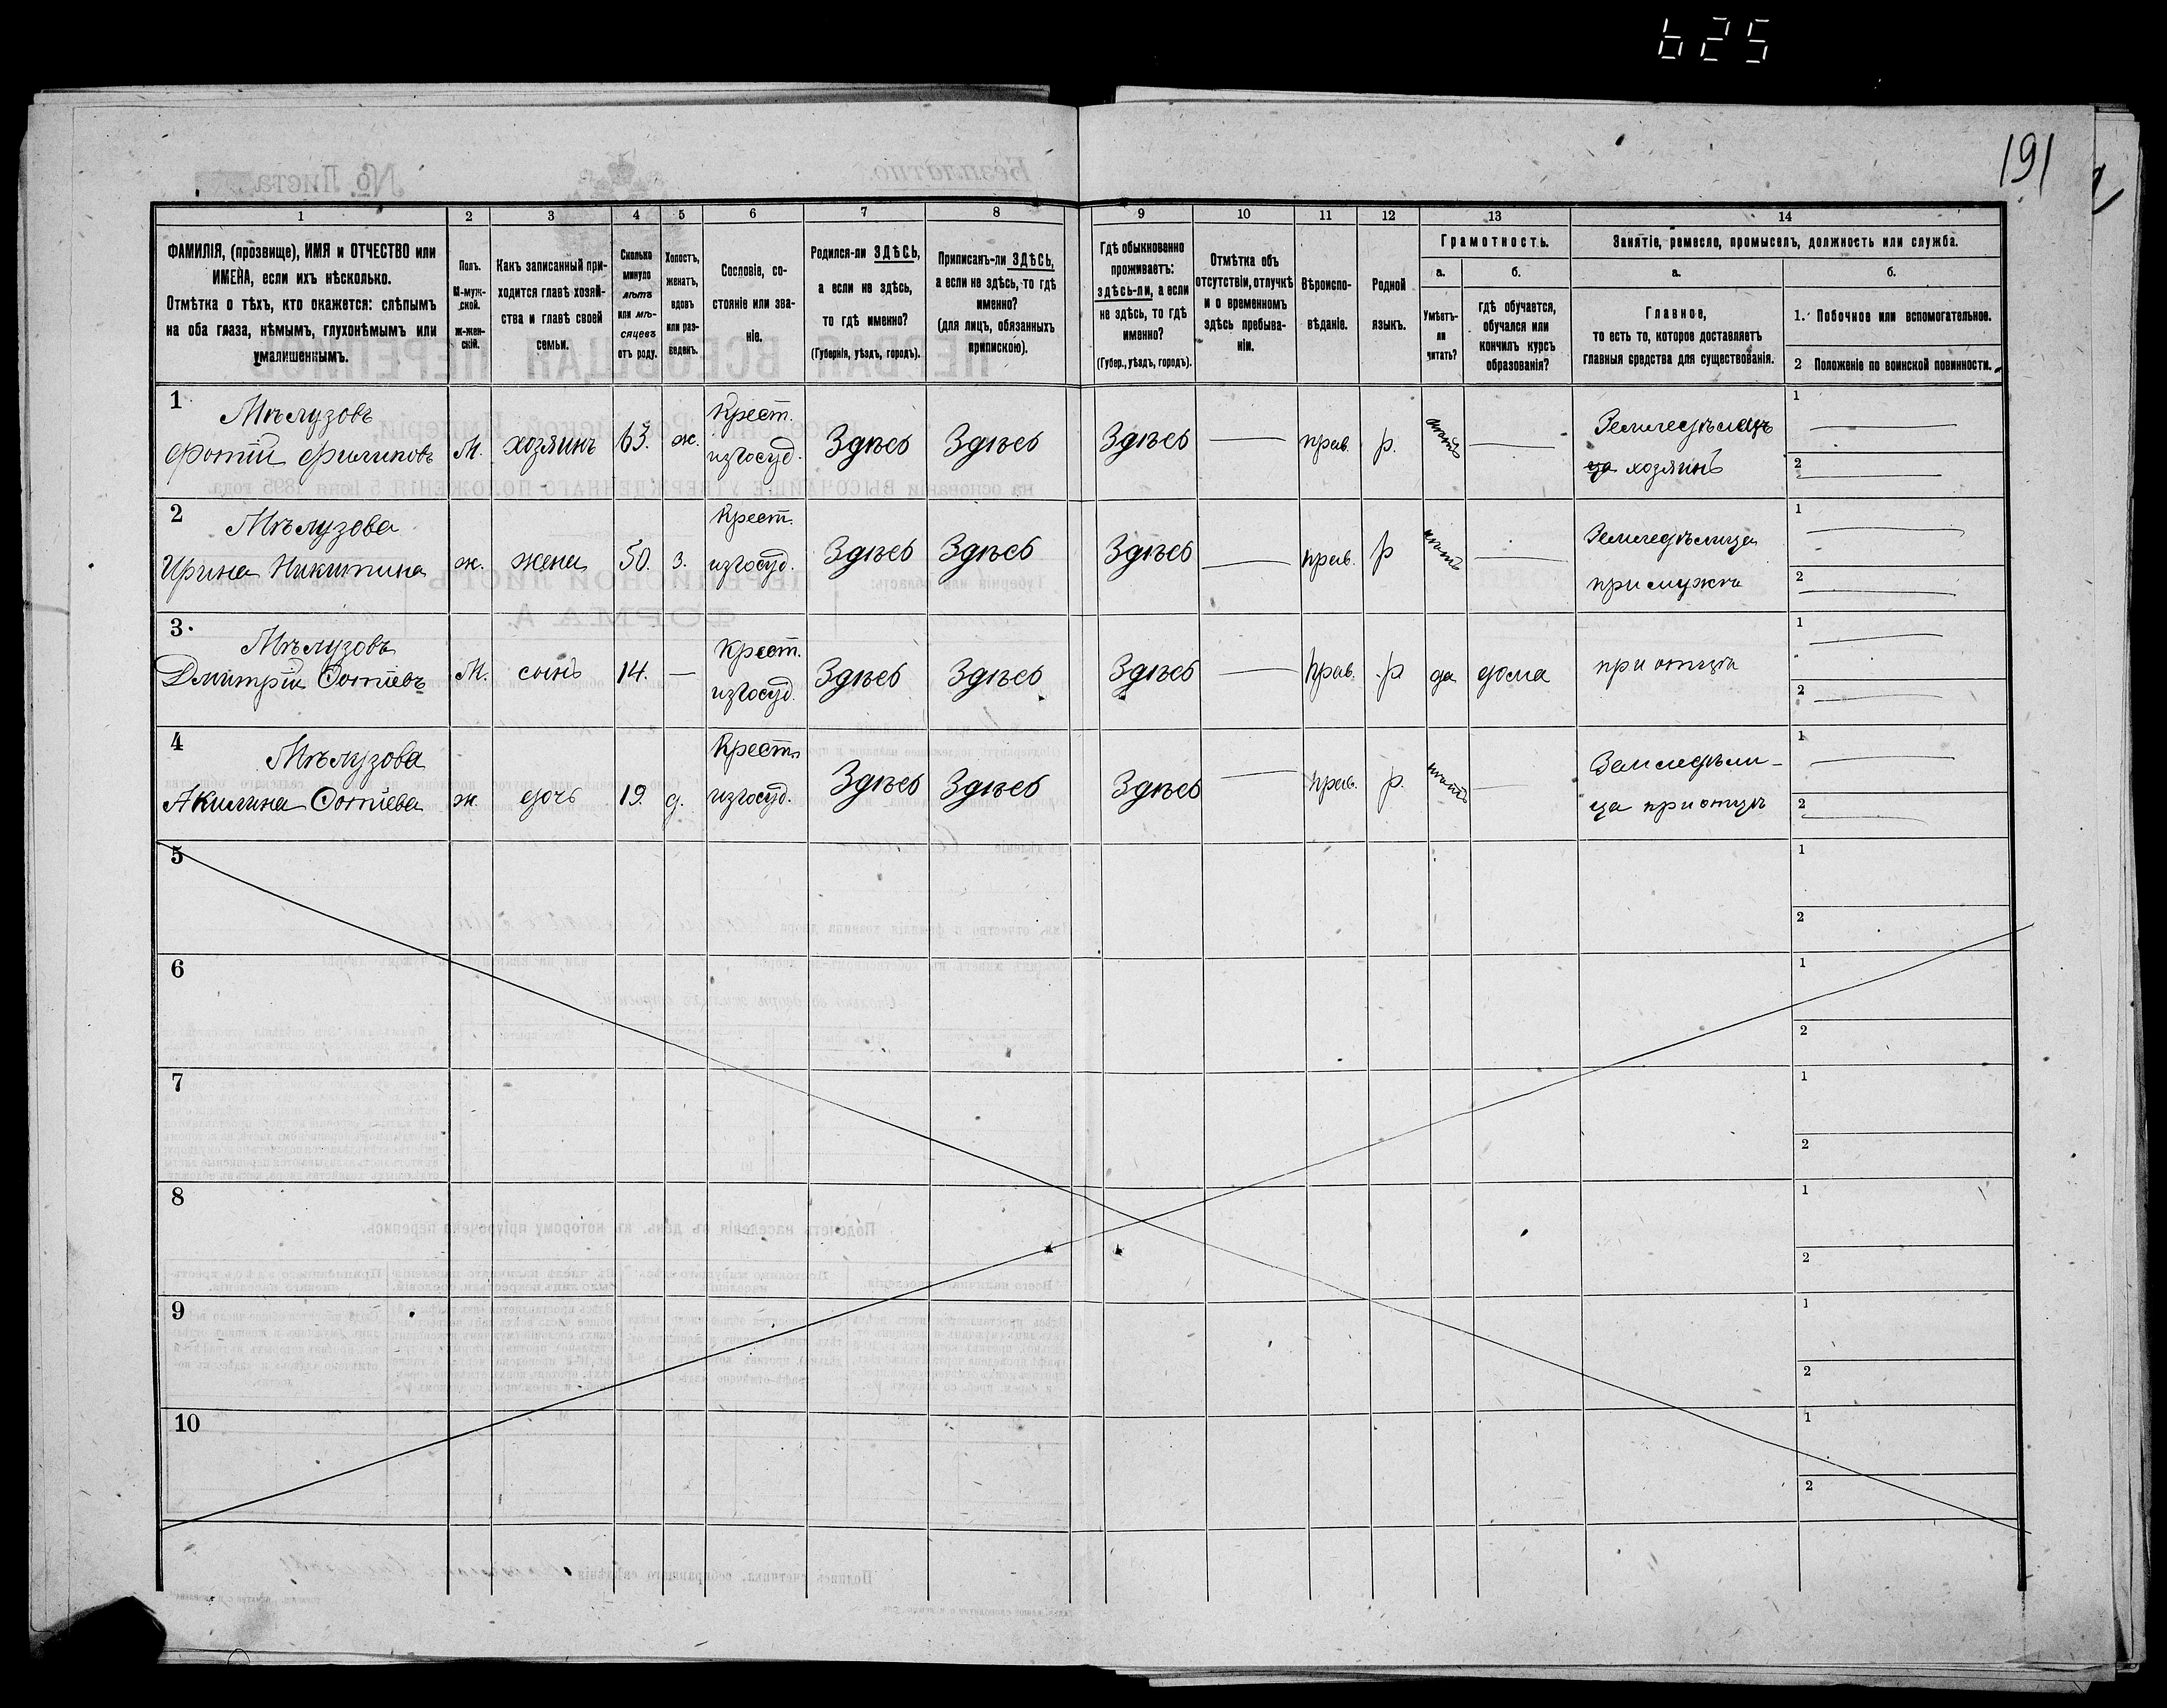 625
191
1 2 3 4 5 6 7 8 9 10 11 12 13 14
ФАМИЛІЯ, (прозвище), ИМЯ и ОТЧЕСТВО или
ИМЕНА, если ихъ нѣсколько.
Отмѣтка о тѣхъ, кто окажется: слѣпымъ
на оба глаза, нѣмымъ, глухонѣмымъ или
умалишеннымъ.
Полъ.
М-муж-
ской.
Ж-жен-
скій.
Какъ записанный при-
ходится главѣ хозяй-
ства и главѣ своей
семьи.
Сколько
минуло
лѣтъ
или мѣ-
сяцевъ
отъ роду.
Холостъ,
женатъ,
вдовъ
или раз-
веденъ.
Сословіе, со-
стояніе или зва-
ніе.
Родился-ли ЗДѢСЬ,
а если не здѣсь,
то гдѣ именно?
(Губернія, уѣздъ, городъ).
Приписанъ-ли ЗДѢСЬ,
а если не здѣсь, то гдѣ
именно?
(для лицъ, обязанныхъ
припискою).
Гдѣ обыкновенно
проживаетъ:
здѣсь-ли, а если
не здѣсь, то гдѣ
именно?
(Губер., уѣздъ, городъ).
Отмѣтка объ
отсутствіи, отлучкѣ
и о временномъ
здѣсь пребыва-
ніи.
Вѣроиспо-
вѣданіе.
Родной
языкъ.
Грамотность.
а.
Умѣетъ-
ли
читать?
б.
гдѣ обучается,
обучался или
кончилъ курсъ
образованія?
Занятіе, ремесло, промыселъ, должность или служба.
а.
Главное,
то есть то, которое доставляетъ
главныя средства для существованія.
б.
1. Побочное или вспомогательное.
2 Положеніе по воинской повинности.
1
Мѣлузовъ
Фотій Филиповъ
М. хозяинъ 63. ж.
Крест.
изгосуд.
Здѣсь Здѣсь Здѣсь — прав. р. нѣтъ —
Земледѣлецъ
хозяинъ
1 —
2 —
2
Мѣлузова
Ирина Никитина
ж. жена 50. з.
Крест.
изгосуд.
Здѣсь Здѣсь Здѣсь — прав. р нѣтъ —
Земледѣлица
при мужѣ
1 —
2 —
3
Мѣлузовъ
Дмитрій Фотіевъ
М. сынъ 14. —
Крест.
изгосуд.
Здѣсь Здѣсь Здѣсь — прав. р да дома
при отцѣ
1 —
2 —
4
Мѣлузова
Акилина Фотіева
ж. дочь 19. д.
Крест.
изгосуд.
Здѣсь Здѣсь Здѣсь — прав. р. нѣтъ —
Земледѣли-
ца при отцѣ
1 —
2 —
5
1
2
6
1
2
7
1
2
8
1
2
9
1
2
10
1
2